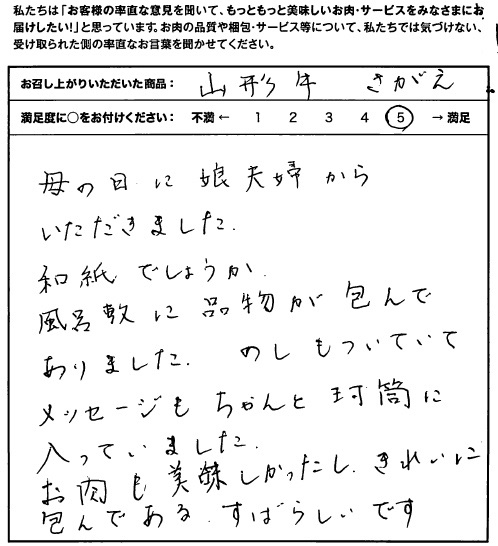 私たちは「お客様の率直な意見を聞いて、もっともっと美味しいお肉・サービスをみなさまにお
届けしたい！」と思っています。お肉の品質や梱包・サービス等について、私たちでは気づけない、
受け取られた側の率直なお言葉を聞かせてください。
お召し上がりいただいた商品： 山形牛 さがえ
満足度に○をお付けください： 不満 ← 1 2 3 4 5 → 満足
母の日に娘夫婦から
いただきました.
和紙でしょうか.
風呂敷に品物が包んで
ありました. のしもついていて
メッセージもちゃんと封筒に
入っていました.
お肉も美味しかったし、きれいに
包んである.すばらしいです